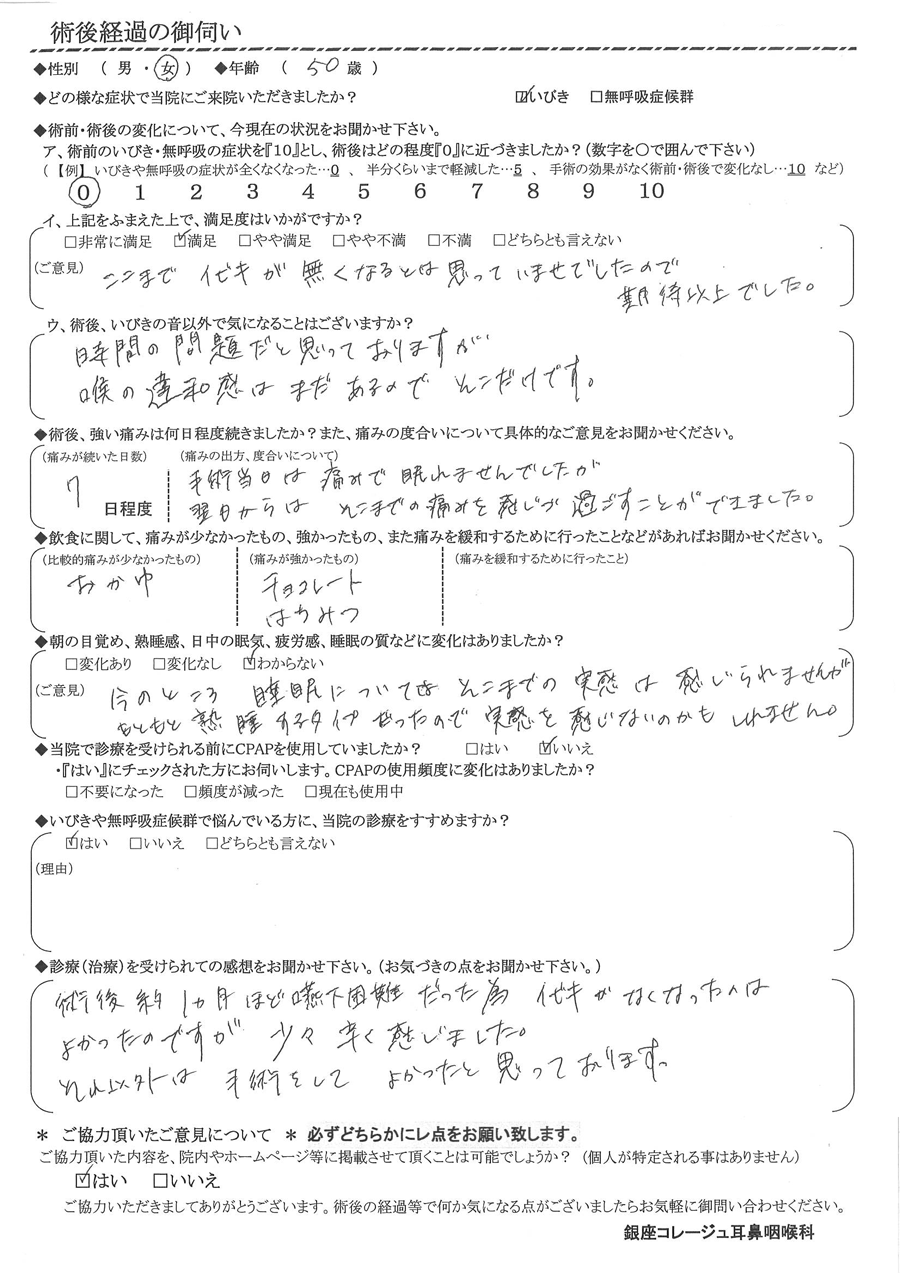 術後経過の御伺い
◆性別 ( 男 ・ 女 ) ◆年齢 ( 50 歳 )
◆どの様な症状で当院にご来院いただきましたか? ☑いびき □無呼吸症候群
◆術前・術後の変化について、今現在の状況をお聞かせ下さい。
ア、術前のいびき・無呼吸の症状を『10』とし、術後はどの程度『0』に近づきましたか?(数字を○で囲んで下さい)
(【例】いびきや無呼吸の症状が全くなくなった…0 、 半分くらいまで軽減した…5 、 手術の効果がなく術前・術後で変化なし…10 など)
0 1 2 3 4 5 6 7 8 9 10
イ、上記をふまえた上で、満足度はいかがですか?
□非常に満足 ☑満足 □やや満足 □やや不満 □不満 □どちらとも言えない
(ご意見) ここまで イビキが 無くなるとは思っていませでしたので
期待以上でした。
ウ、術後、いびきの音以外で気になることはございますか?
時間の問題だと思っておりますが
喉の違和感は まだ あるので そこだけです。
◆術後、強い痛みは何日程度続きましたか?また、痛みの度合いについて具体的なご意見をお聞かせください。
(痛みが続いた日数) (痛みの出方、度合いについて)
7 日程度 手術当日は 痛みで 眠れませんでしたが
翌日からは そこまでの痛みを感じづ 過ごすことができました。
◆飲食に関して、痛みが少なかったもの、強かったもの、また痛みを緩和するために行ったことなどがあればお聞かせください。
(比較的痛みが少なかったもの) (痛みが強かったもの) (痛みを緩和するために行ったこと)
おかゆ チョコレート
はちみつ
◆朝の目覚め、熟睡感、日中の眠気、疲労感、睡眠の質などに変化はありましたか?
□変化あり □変化なし ☑わからない
(ご意見) 今のところ 睡眠については そこまでの 実感は 感じられませんが
もともと熟睡するタイプだったので 実感を 感じないのかも しれません。
◆当院で診療を受けられる前にCPAPを使用していましたか? □はい ☑いいえ
・『はい』にチェックされた方にお伺いします。CPAPの使用頻度に変化はありましたか?
□不要になった □頻度が減った □現在も使用中
◆いびきや無呼吸症候群で悩んでいる方に、当院の診療をすすめますか?
☑はい □いいえ □どちらとも言えない
(理由)
◆診療(治療)を受けられての感想をお聞かせ下さい。(お気づきの点をお聞かせ下さい。)
術後約1カ月ほど嚥下困難だった為 イビキがなくなったのは
よかったのですが 少々 辛く感じました。
それ以外は 手術をして よかったと思っております。
* ご協力頂いたご意見について * 必ずどちらかにレ点をお願い致します。
ご協力頂いた内容を、院内やホームページ等に掲載させて頂くことは可能でしょうか? (個人が特定される事はありません)
☑はい □いいえ
ご協力いただきましてありがとうございます。術後の経過等で何か気になる点がございましたらお気軽に御問い合わせください。
銀座コレージュ耳鼻咽喉科